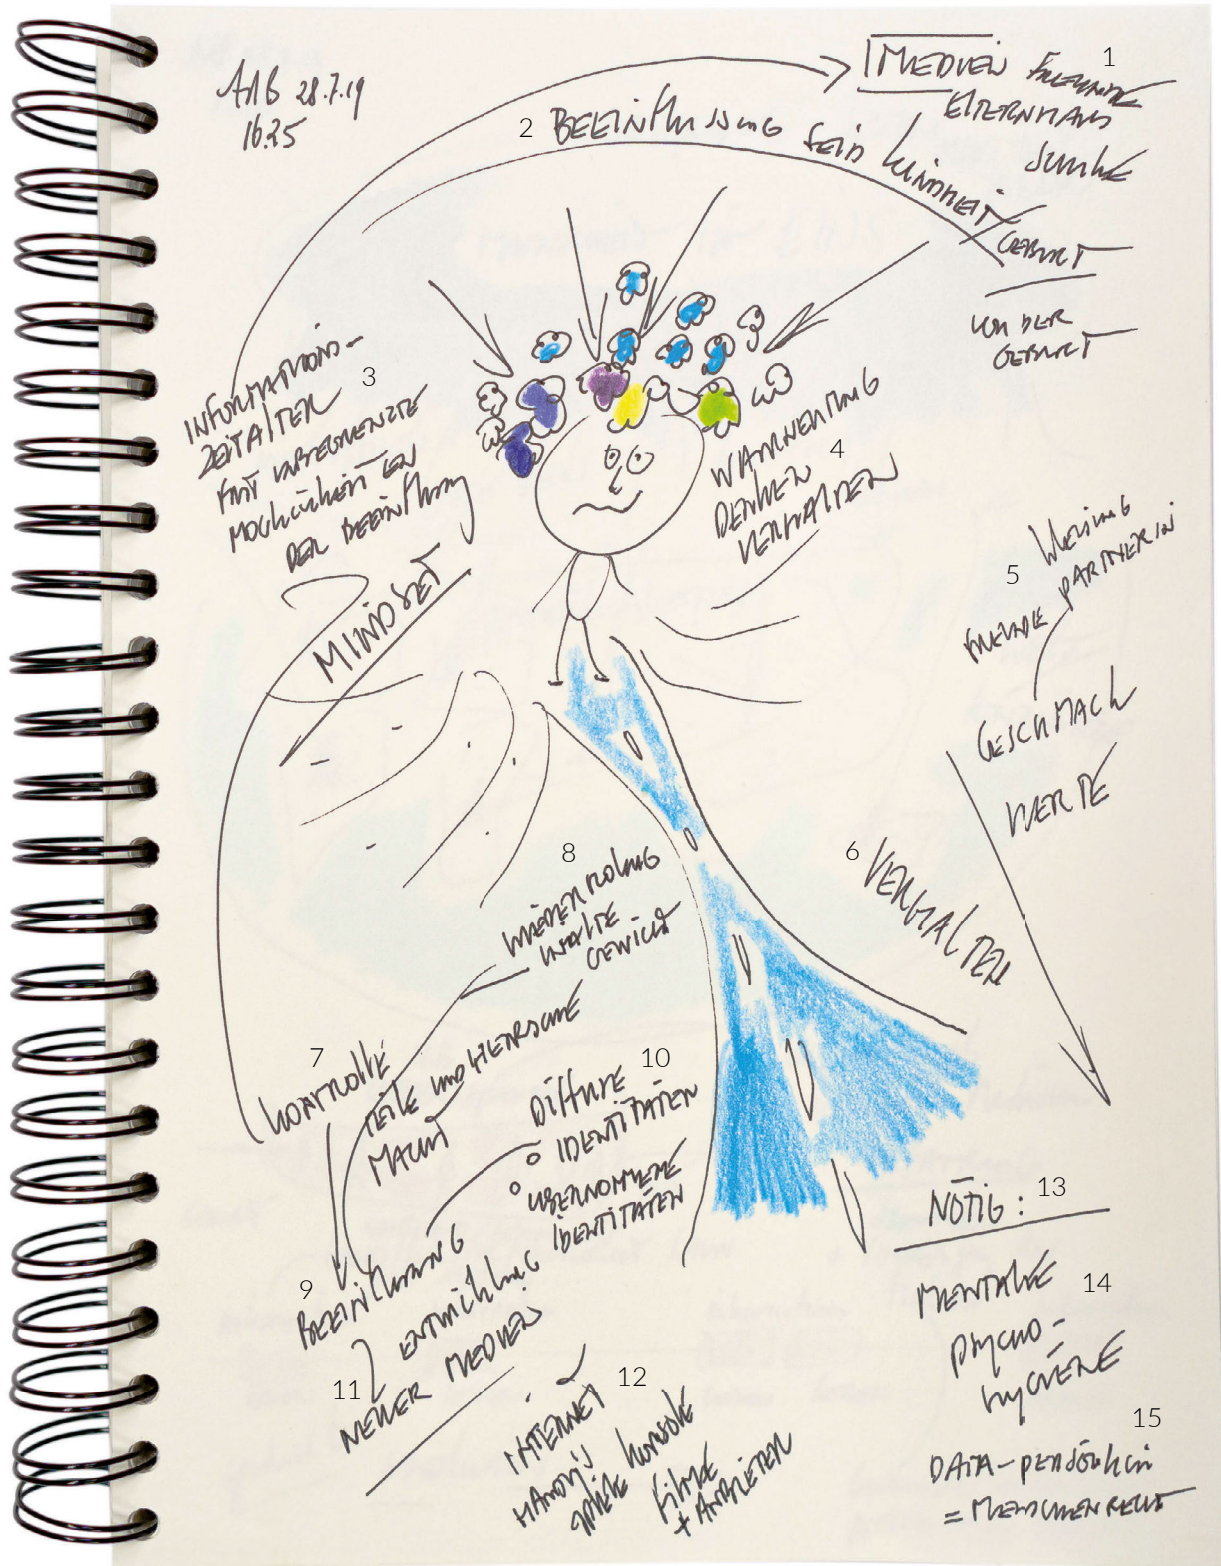 28.7.19
16.25
1
MEDIEN FREUNDE
ELTERNHAUS
SCHULE
2 BEEINFLUSSUNG SEID KINDHEIT
GEBURT
VON DER
GEBURT
3
INFORMATIONS-
ZEITALTER
MIT UNBEGRENZTE
MÖGLICHKEITEN
DER BEEINFLUSSUNG
MINDSET
4
WAHRNEHMUNG
DENKEN
VERHALTEN
5
KLEIDUNG
FREUNDE PARTNERIN
GESCHMACK
WERTE
6 VERHALTEN
8
WIEDERHOLUNG
INHALTE
GEWICHT
7
KONTROLLE
TEILE UND HERRSCHE
MACHT
10
DIFFUSE
IDENTITÄTEN
ÜBERNOMMENE
IDENTITÄTEN
9
BEEINFLUSSUNG
11
ENTWICKLUNG
NEUER MEDIEN
12
INTERNET
HANDYS
SPIELE KONSOLE
FILME
+ ANBIETER
NÖTIG: 13
MENTALE 14
PSYCHO-
HYGIENE
15
DATA-PERSÖNLICH
= MENSCHENRECHT